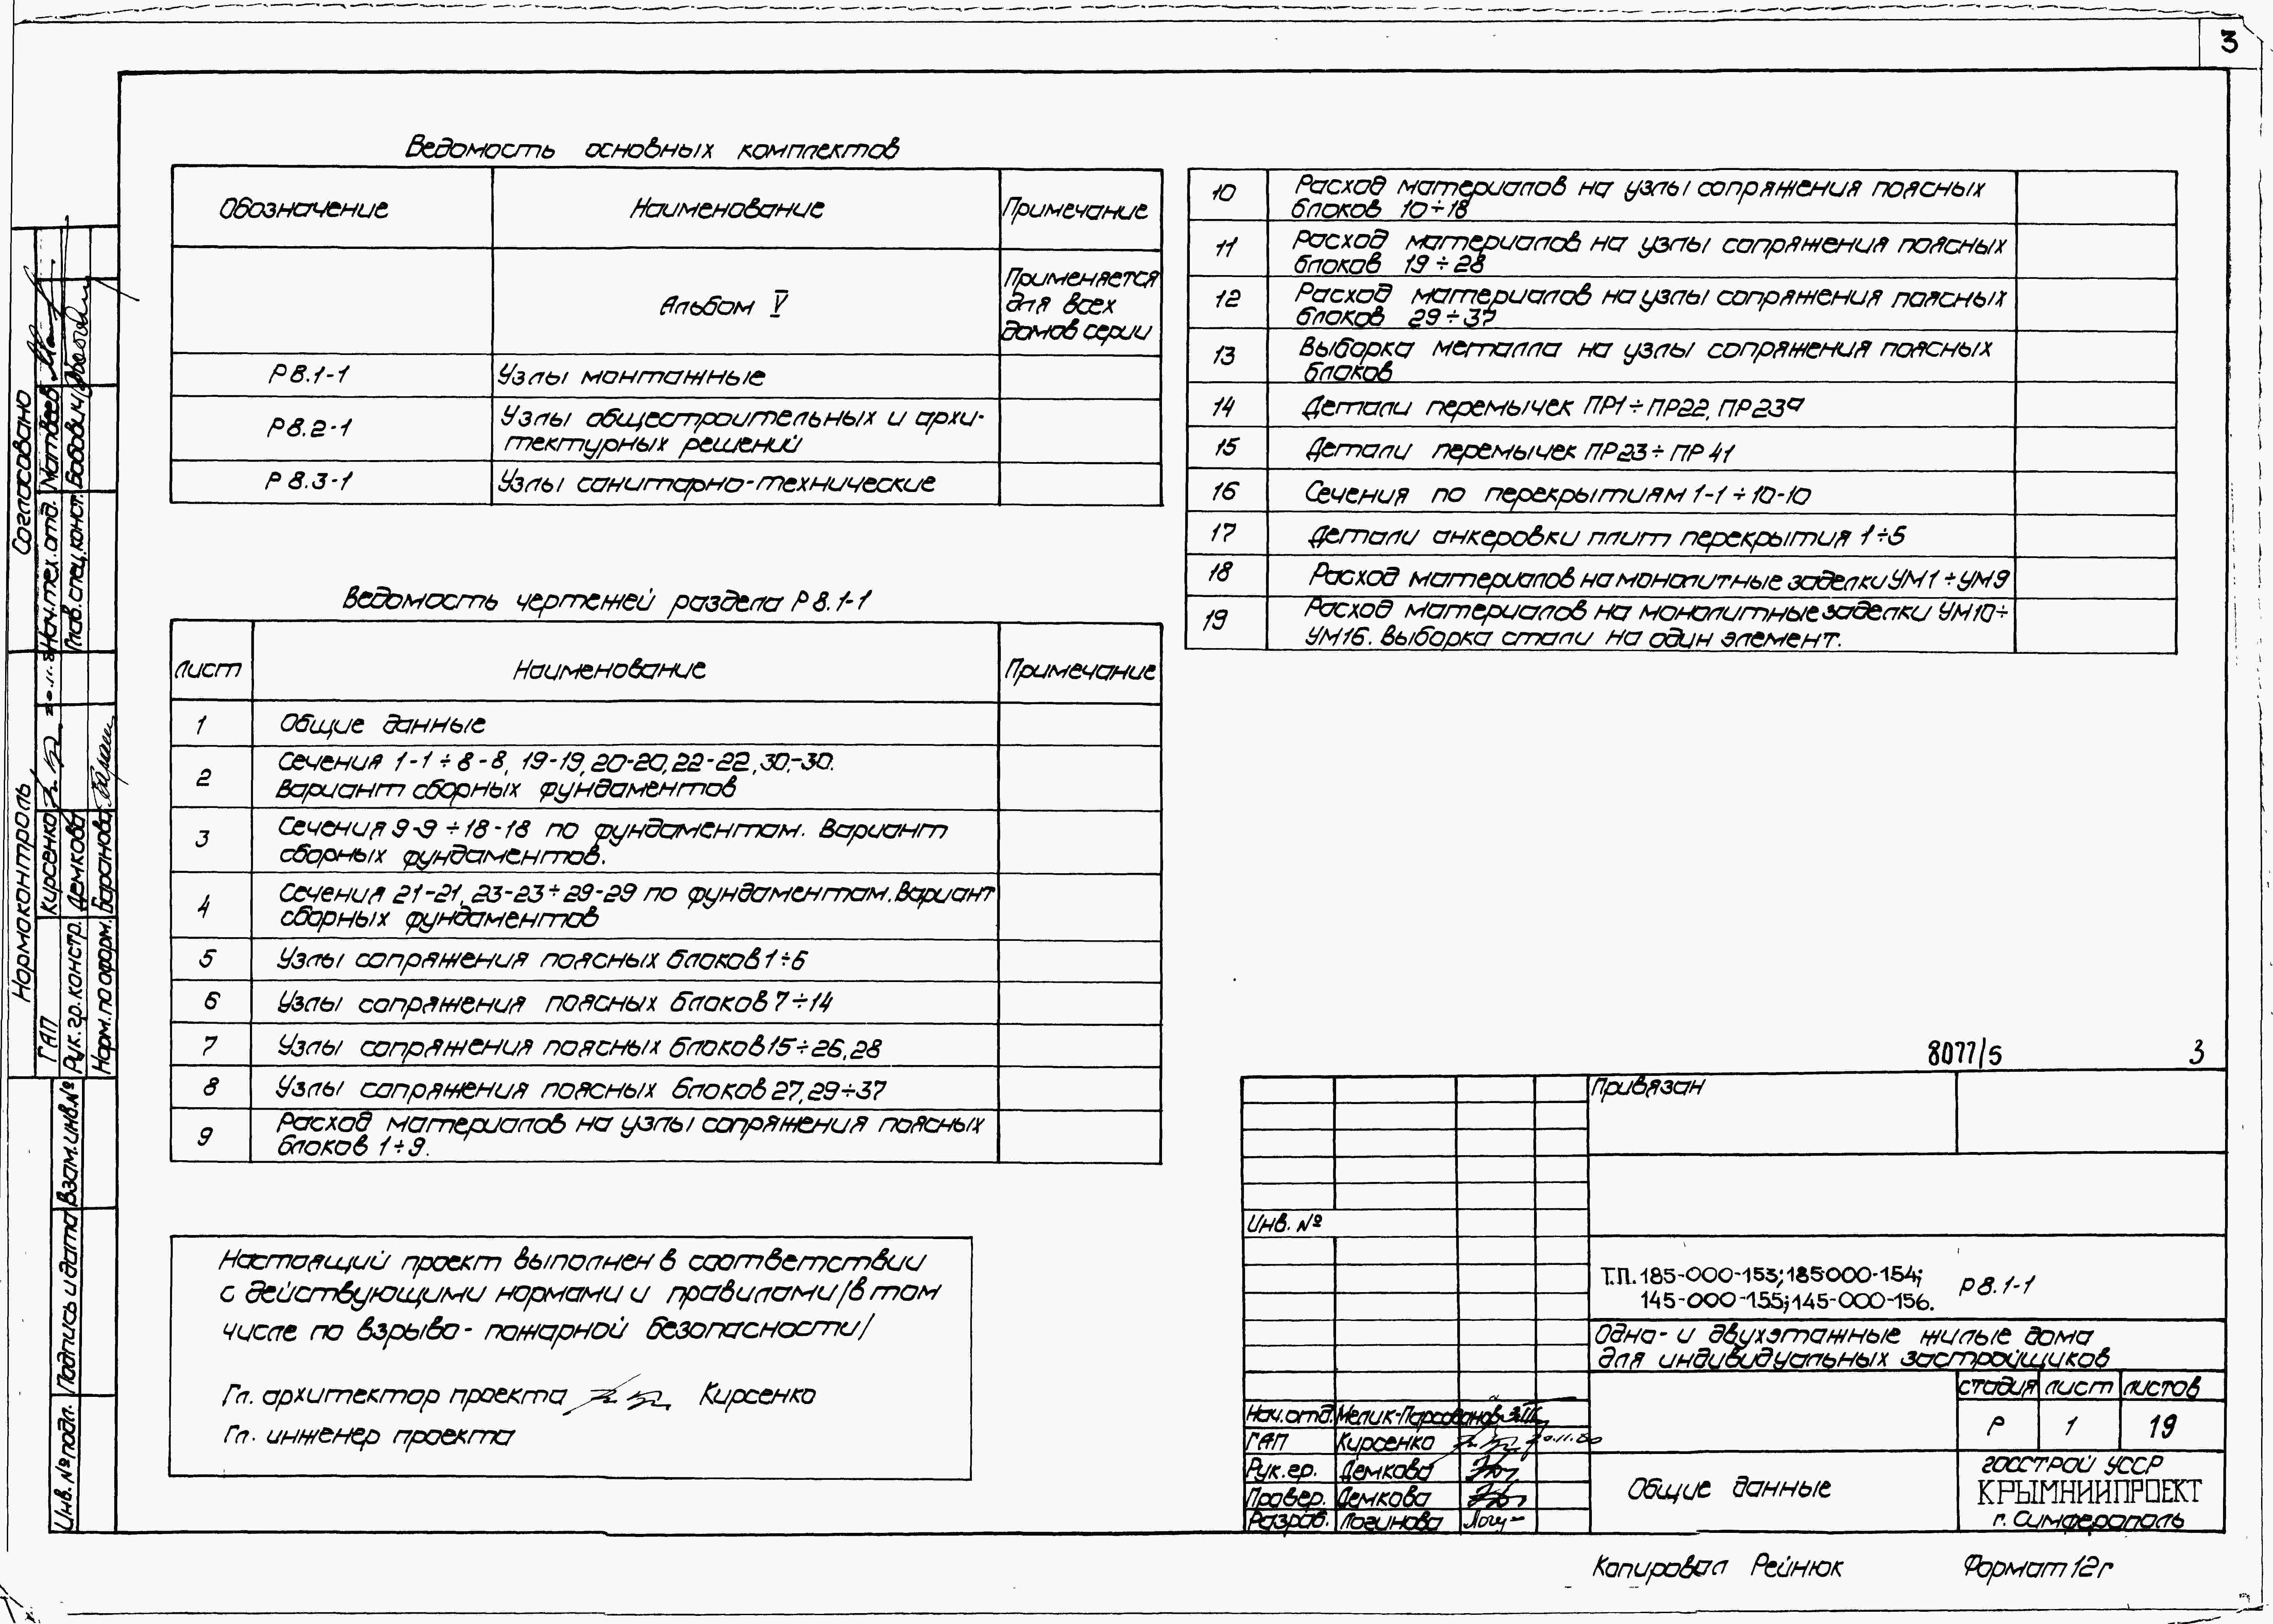 3
Ведомость основных комплектов
Обозначение
Наименование
Примечание
Альбом V
Применяется
для всех
домов серии
Р 8.1-1
Узлы монтажные
Р 8.2-1
Узлы общестроительных и архи-
тектурных решений
Р 8.3-1
Узлы санитарно-технические
Ведомость чертежей раздела Р 8.1-1
Лист
Наименование
Примечание
1
Общие данные
2
Сечения 1-1÷8-8, 19-19, 20-20, 22-22, 30-30.
Вариант сборных фундаментов
3
Сечения 9-9÷18-18 по фундаментам. Вариант
сборных фундаментов.
4
Сечения 21-21, 23-23÷29-29 по фундаментам. Вариант
сборных фундаментов
5
Узлы сопряжения поясных блоков 1÷6
6
Узлы сопряжения поясных блоков 7÷14
7
Узлы сопряжения поясных блоков 15÷26, 28
8
Узлы сопряжения поясных блоков 27, 29÷37
9
Расход материалов на узлы сопряжения поясных
блоков 1÷9.
10
Расход материалов на узлы сопряжения поясных
блоков 10÷18
11
Расход материалов на узлы сопряжения поясных
блоков 19÷28
12
Расход материалов на узлы сопряжения поясных
блоков 29÷37
13
Выборка металла на узлы сопряжения поясных
блоков
14
Детали перемычек ПР1÷ПР22, ПР23а
15
Детали перемычек ПР23÷ПР41
16
Сечения по перекрытиям 1-1÷10-10
17
Детали анкеровки плит перекрытия 1÷5
18
Расход материалов на монолитные заделки УМ1÷УМ9
19
Расход материалов на монолитные заделки УМ10÷
УМ16. Выборка стали на один элемент.
Настоящий проект выполнен в соответствии
с действующими нормами и правилами /в том
числе по взрыво-пожарной безопасности/
Гл. архитектор проекта Кирсенко
Гл. инженер проекта
8077/5 3
Привязан
Инв. №
Т.П. 185-000-153; 185-000-154;
145-000-155; 145-000-156.
Р 8.1-1
Одно- и двухэтажные жилые дома
для индивидуальных застройщиков
стадия лист листов
Р 1 19
Нач.отд. Мелик-Парсаданов
ГАП Кирсенко 20.11.80
Рук.гр. Демкова
Провер. Демкова
Разраб. Логинова
Общие данные
ГОССТРОЙ УССР
КРЫМНИИПРОЕКТ
г. Симферополь
Копировал Рейнюк
Формат 12г
Согласовано
Нач.тех.отд. Матвеев
Глав.спец.конст. Бабович
Нормоконтроль
ГАП Кирсенко
Рук.гр.констр. Демкова
Норм.по оформ. Баранова
Взам.инв.№
Подпись и дата
Инв.№подл.